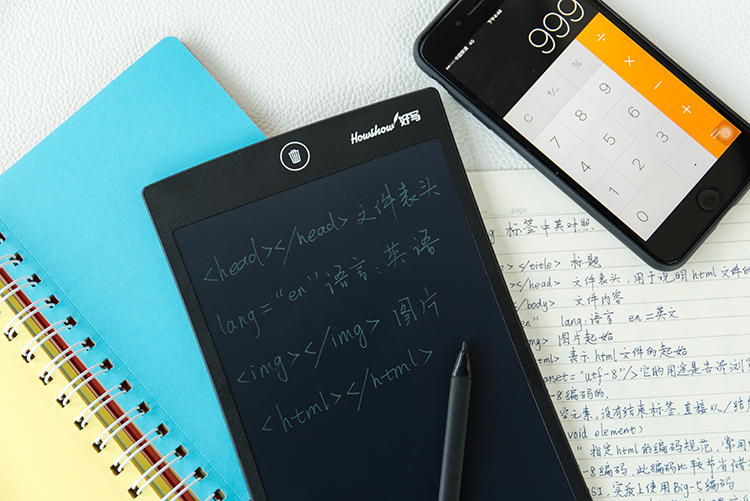 Howshow 好写
<head></head> 文件表头
lang="en" 语言:英语
<img></img> 图片
<html></html>
中国联通 4G
下午6:48
999
÷
% ×
+/- −
C +
7 8 9
4 5 6
1 2 3
0
page
标签中英对照
></title> 标题
></head> 文件表头,用于说明html文件的
</body> 文件内容
en" lang:语言 en=英文
图片起始
html> 表示html文件的起始
="utf-8"/>它的用途是告诉浏
-8编码的,
元素,没有结束标签,直接以/结
void element)
指定html的编码规范,常用
-8编码,此编码比较节省储
SI,实际上使用Big-5编码